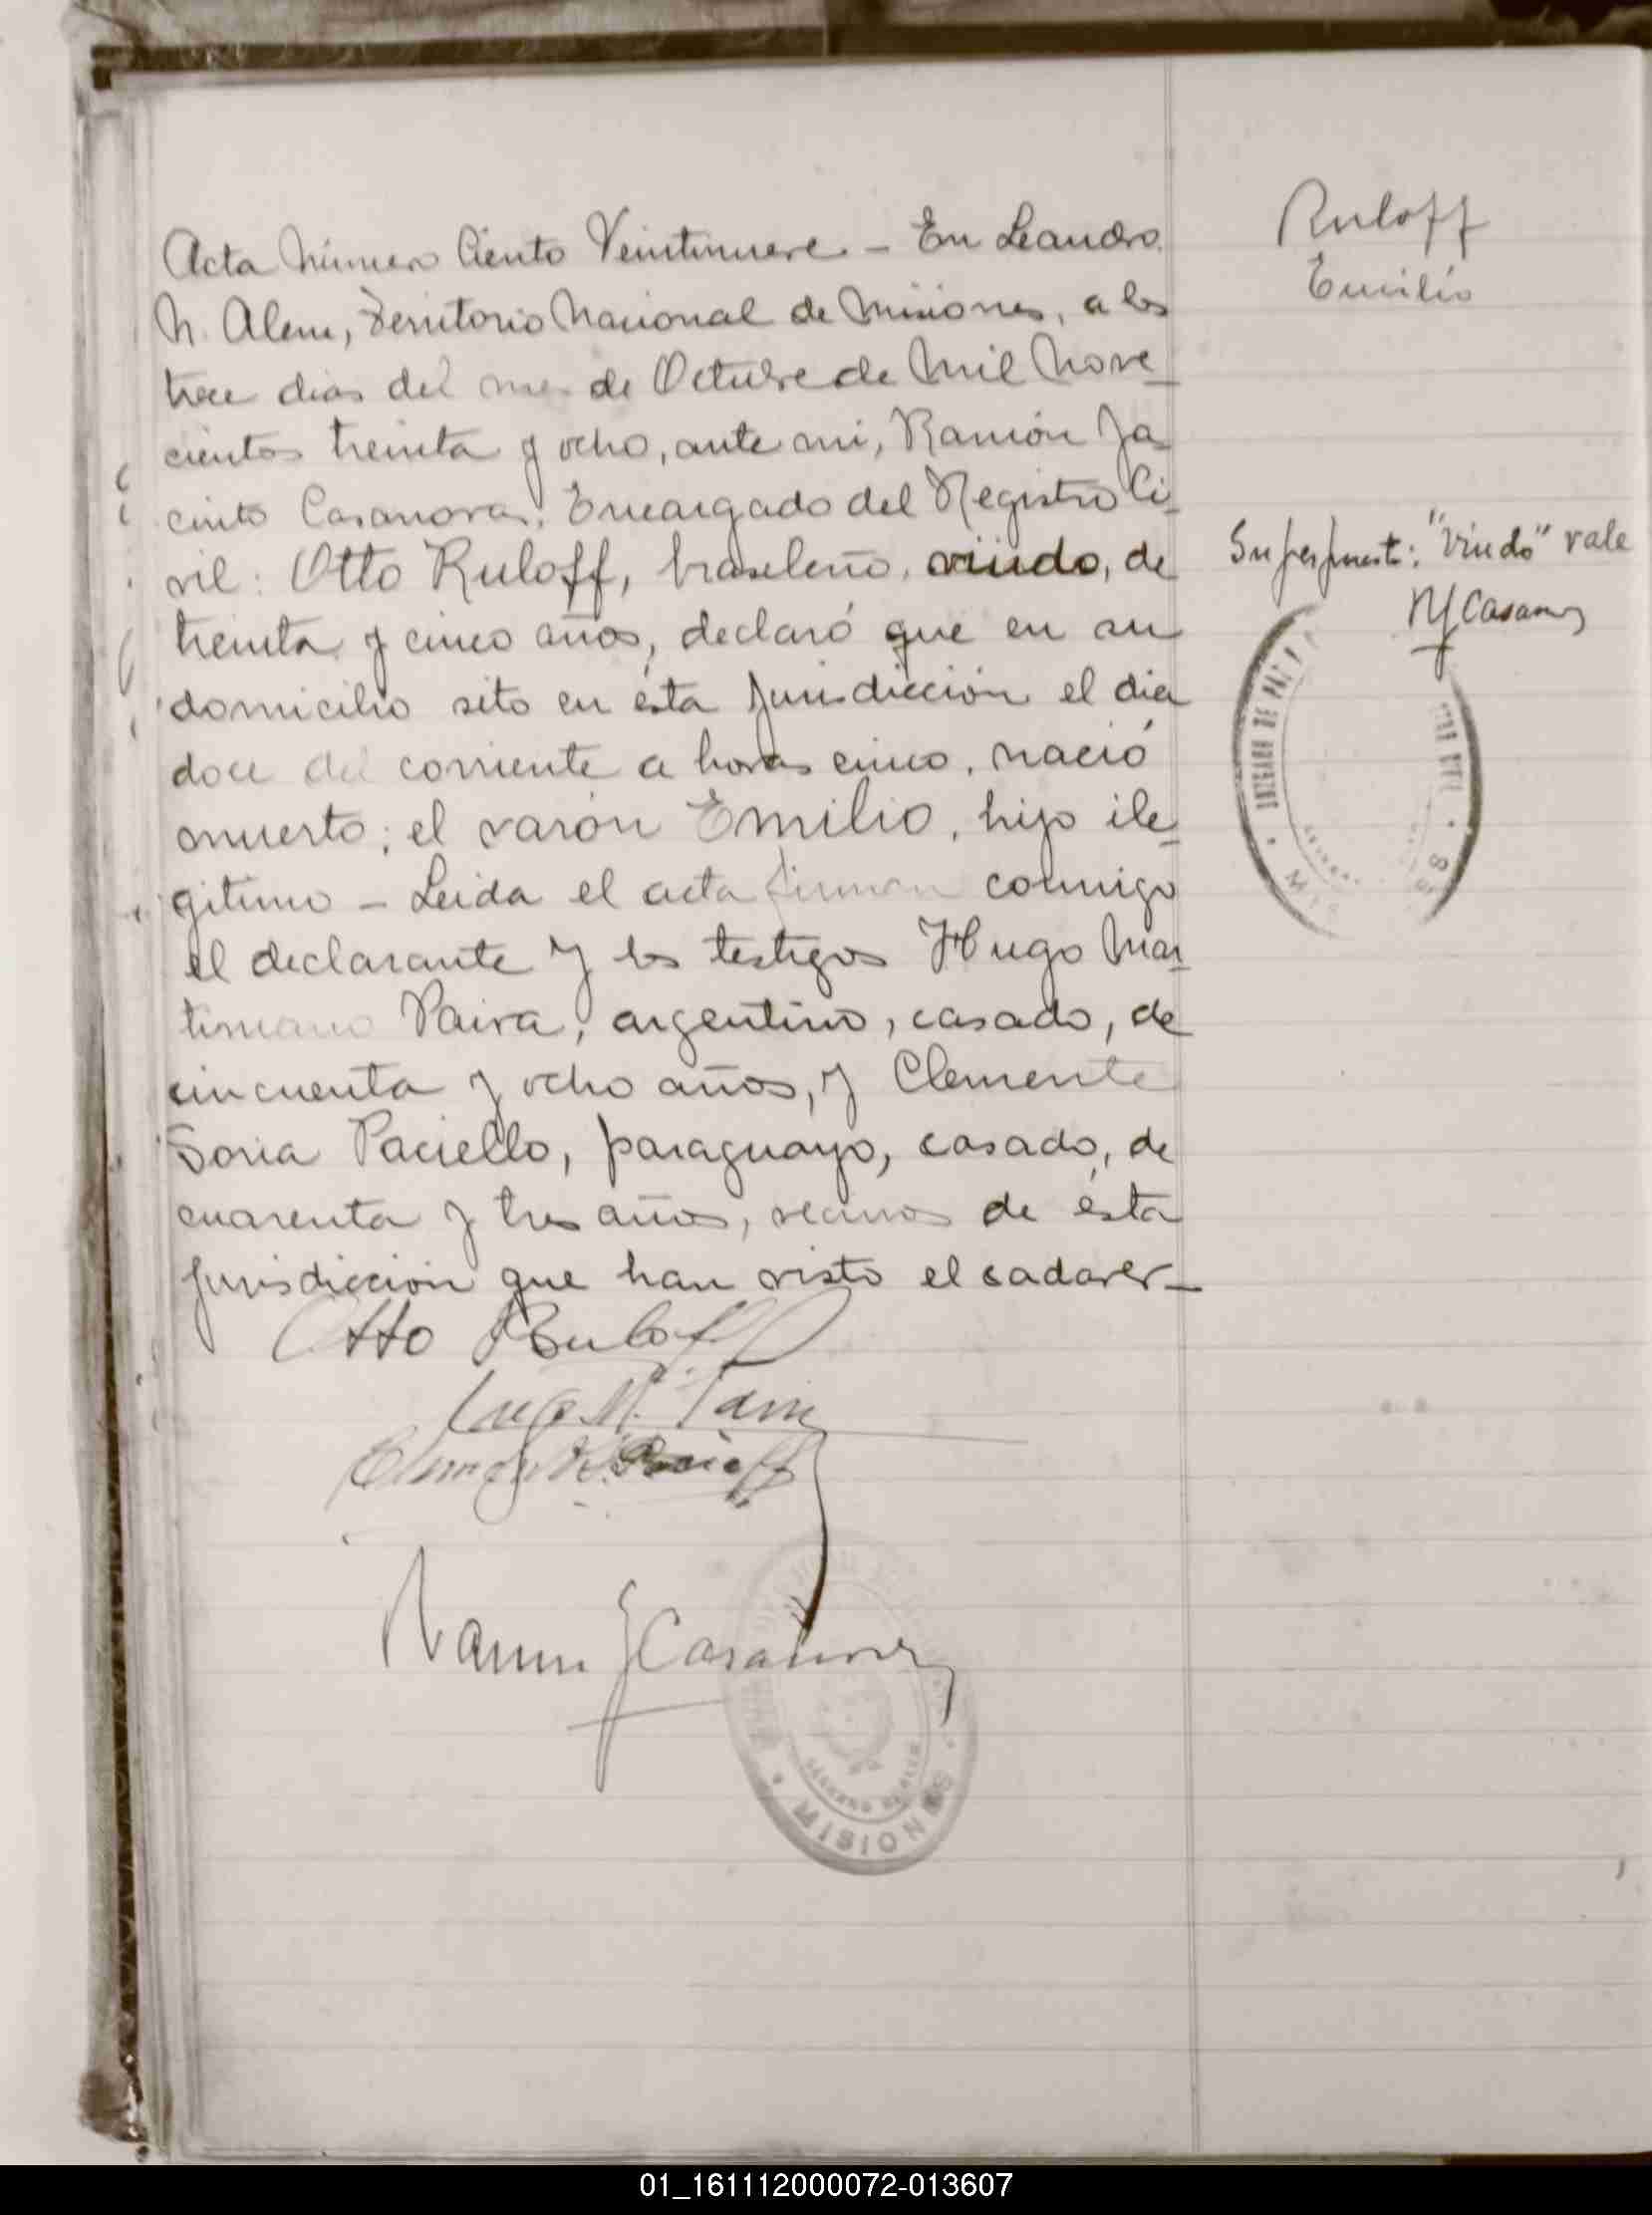 Acta Número Ciento Veintinueve - En Leandro
N. Alem, Territorio Nacional de Misiones, a los
trece dias del mes de Octubre de Mil Nove-
cientos treinta y ocho, ante mi, Ramón Ja-
cinto Casanova, Encargado del Registro Ci-
vil: Otto Ruloff, brasileño, viudo, de
treinta y cinco años, declaró que en su
domicilio sito en ésta jurisdicción el dia
doce del corriente a horas cinco, nació
muerto; el varón Emilio, hijo ile-
gitimo - Leida el acta firman conmigo
el declarante y los testigos Hugo Mar-
timiano Paiva, argentino, casado, de
cincuenta y ocho años, y Clemente
Soria Paciello, paraguayo, casado, de
cuarenta y tres años, vecinos de ésta
jurisdicción que han visto el cadaver-
Otto Ruloff
Ramon J Casanova
MISIONES
Ruloff
Emilio
Superpuesto: "Viudo" vale
RJ Casanova
JUZGADO DE PAZ
01_161112000072-013607